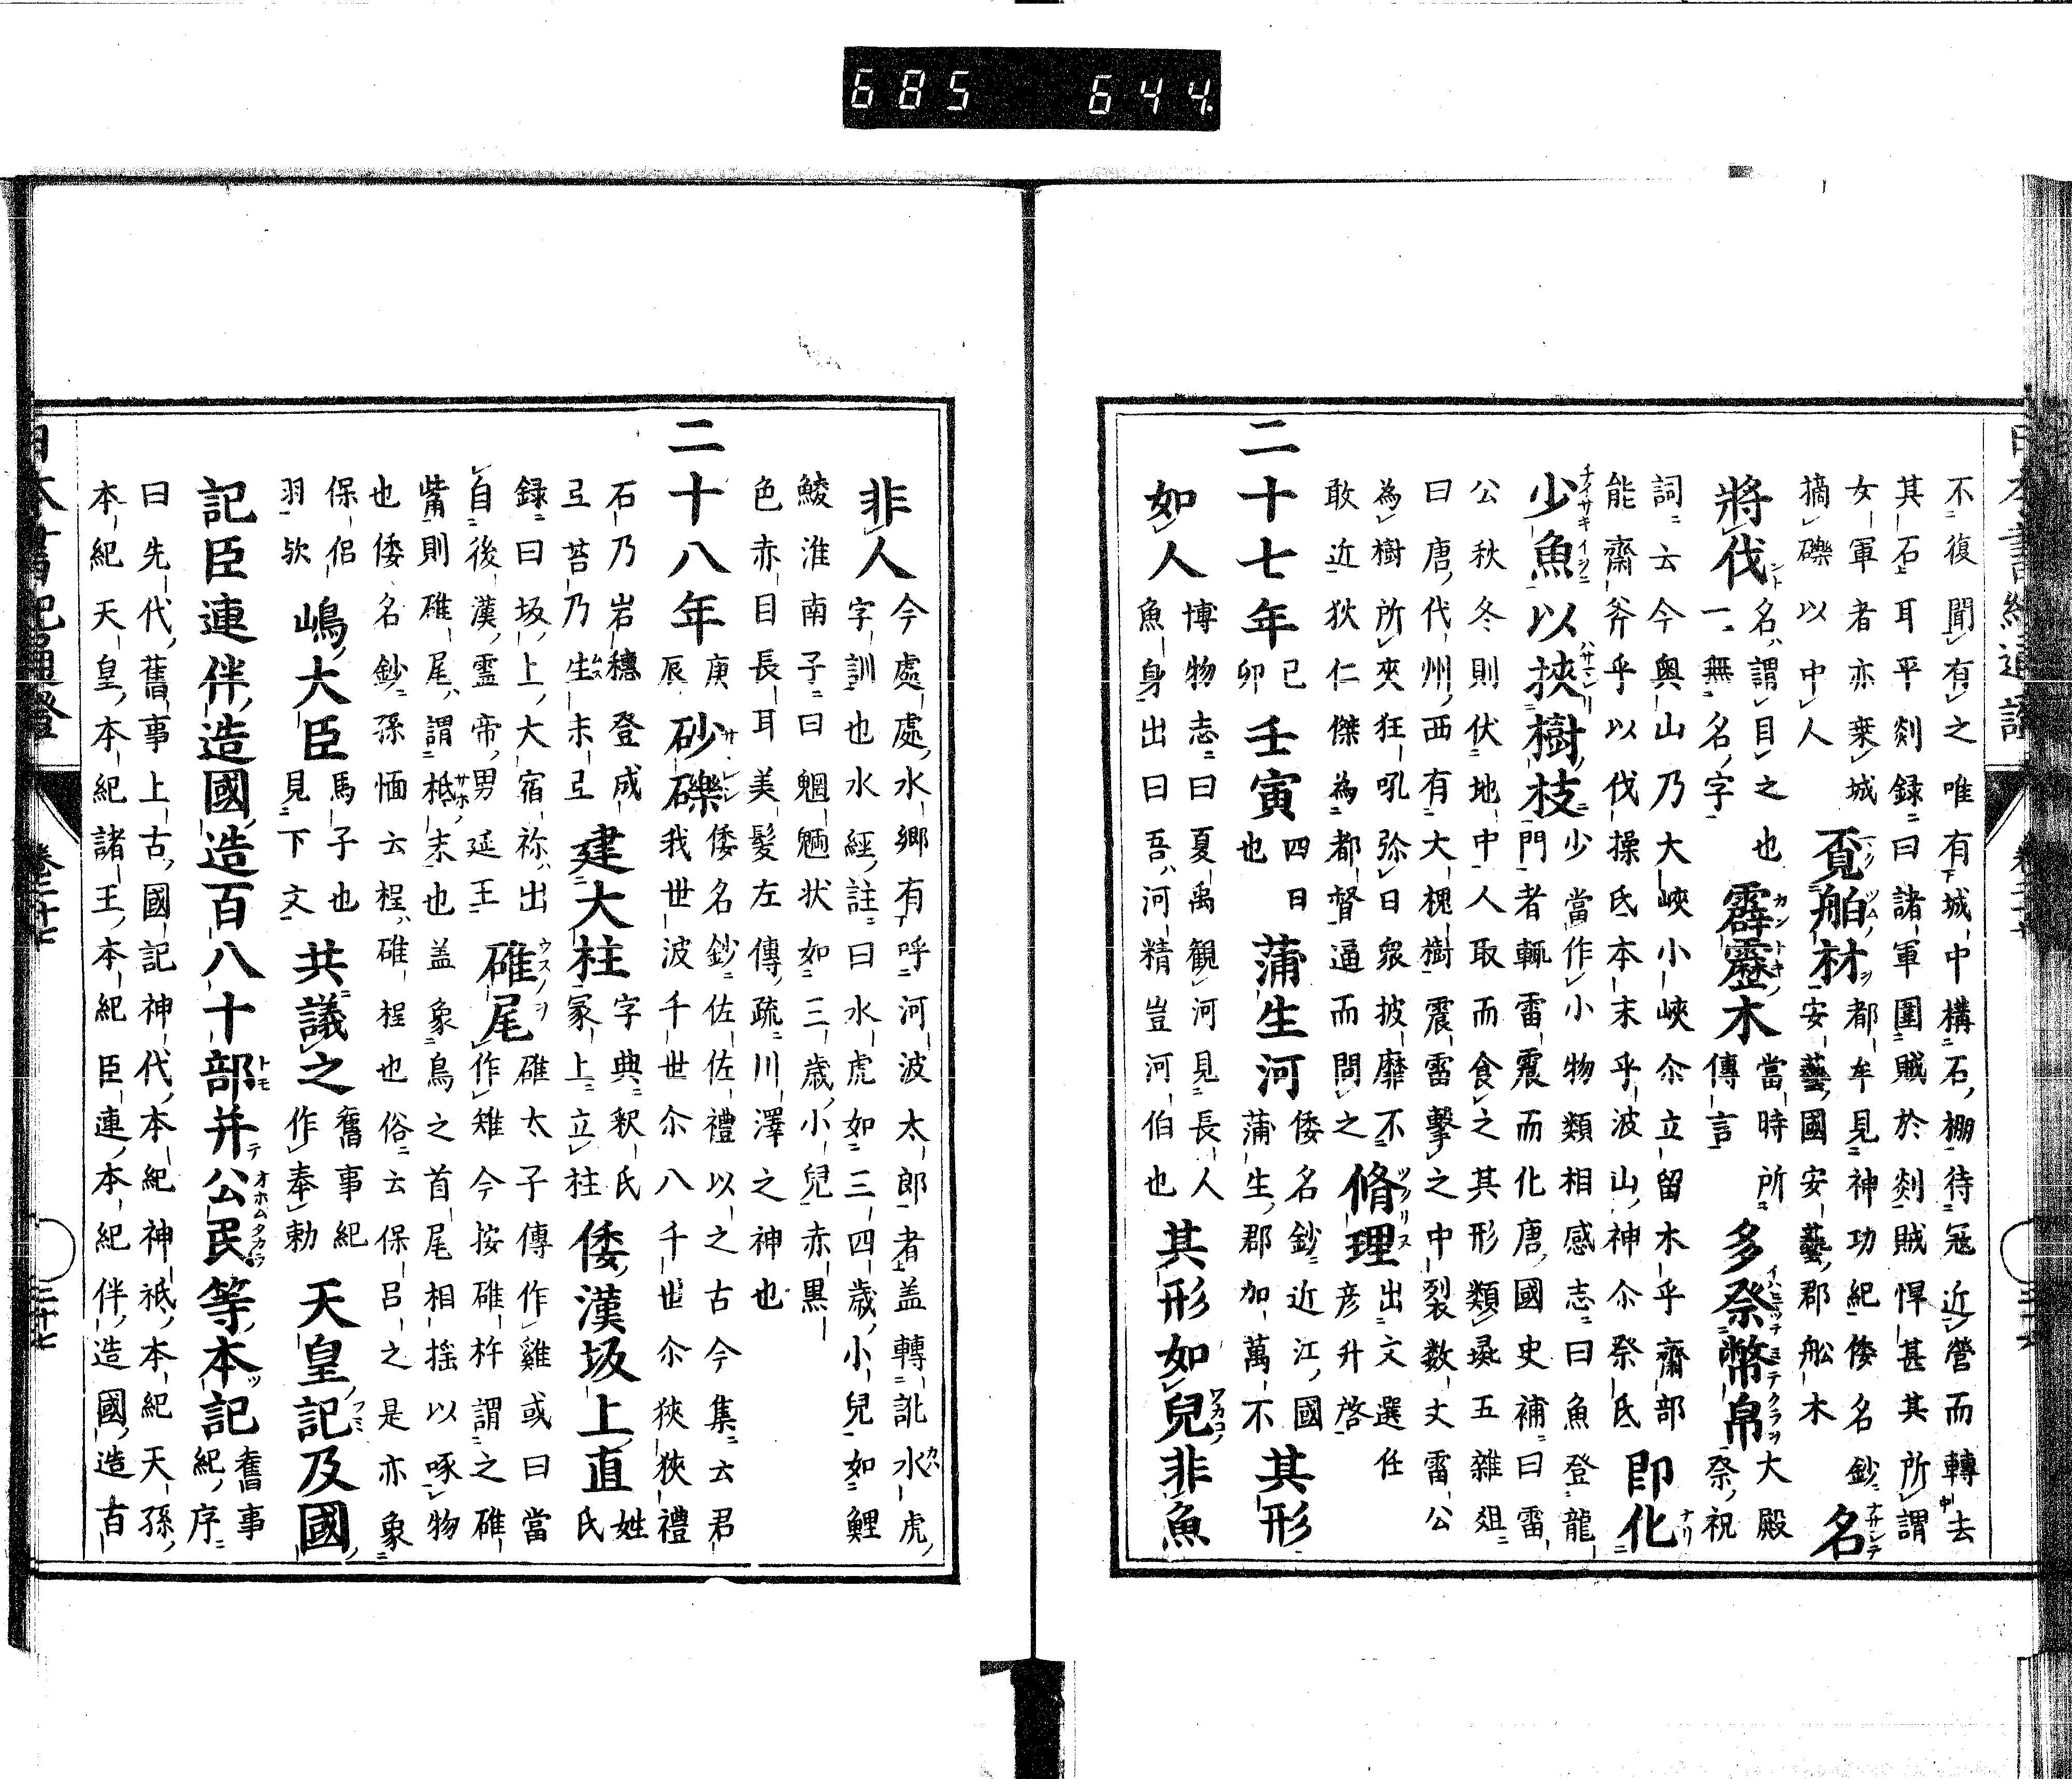 685 644
不復聞有之唯有城中構石棚待冦近營而轉去
其石耳平剡録曰諸軍圍賊於剡賊悍甚其所謂
女軍者亦乗城
摘礫以中人
覔舶材
都牟見神功紀倭名鈔
安藝國安藝郡舩木
名
將伐
名謂目之也
一無名字
霹靂木
當時所
傳言
多祭幣帛
大殿
祭祝
詞云今奥山乃大峽小峽尒立留木乎齋部
能齋斧乎以伐操氐本末乎波山神尒祭氐
即化
少魚以挾樹枝
少當作小物類相感志曰魚登龍
門者輙雷震而化唐國史補曰雷
公秋冬則伏地中人取而食之其形類彘五雜爼
曰唐代州西有大槐樹震雷擊之中裂数丈雷公
為樹所夾狂吼弥日衆披靡不
敢近狄仁傑為都督逼而問之
脩理
出文選任
彦升啓
二十七年
己
卯
壬寅
四日
也
蒲生河
倭名鈔近江國
蒲生郡加萬不
其形
如人
博物志曰夏禹觀河見長人
魚身出曰吾河精豈河伯也
其形如兒非魚
非人
今處處水鄉有呼河波太郎者盖轉訛水虎
字訓也水經註曰水虎如三四歳小兒如鯉
鯪淮南子曰魍魎状如三歳小兒赤黒
色赤目長耳美髪左傳疏川澤之神也
二十八年
庚
辰
砂礫
倭名鈔佐佐禮以之古今集云君
我世波千世尒八千世尒狹狹禮
石乃岩穗登成
弖苔乃生末弖
建大柱
字典釈氏
冢上立柱
倭漢坂上直
姓
氏
録曰坂上大宿祢出
自後漢霊帝男延王
碓尾
碓太子傳作雞或曰當
作雉今按碓杵謂之碓
觜則碓尾謂柢末也盖象鳥之首尾相揺以啄物
也倭名鈔孫愐云桯碓桯也俗云保呂之是亦象
保侶
羽欤
嶋大臣
馬子也
見下文
共議之
舊事紀
作奉勅
天皇記及國
記臣連伴造國造百八十部并公民等本記
舊事
紀序
曰先代舊事上古國記神代本紀神祇本紀天孫
本紀天皇本紀諸王本紀臣連本紀伴造國造百